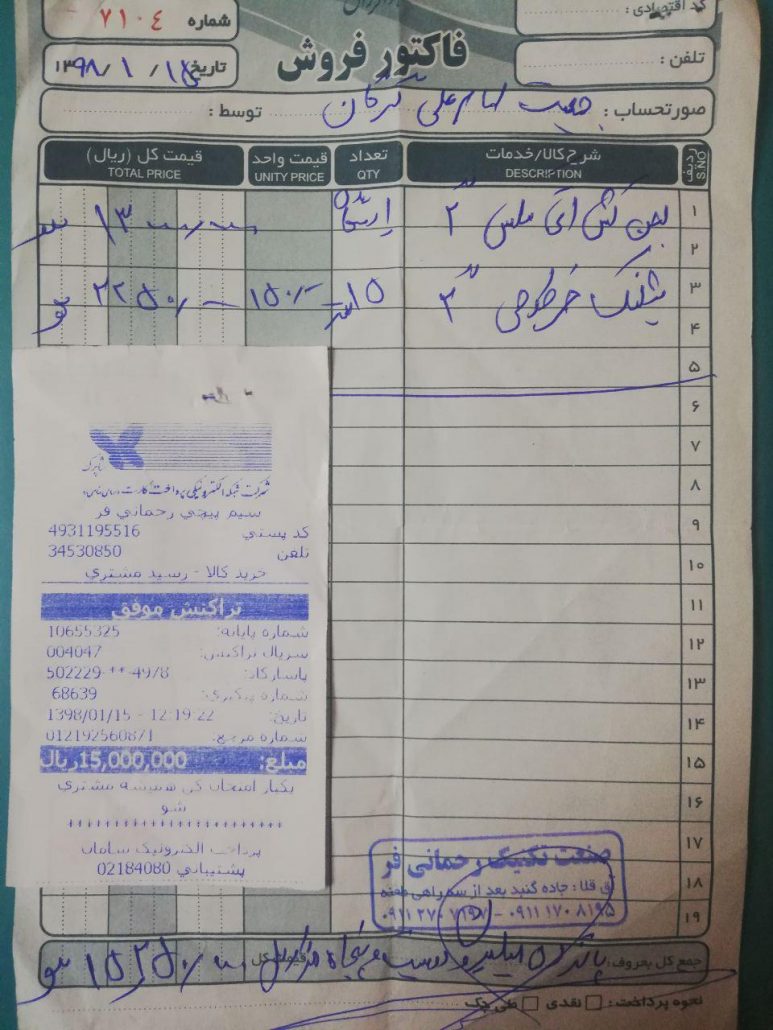 کد اقتصادی :
شماره ۷۱۰۴
فاکتور فروش
تلفن :
تاریخ ۱۳۹۸/۱/
صورتحساب : جمعیت امام علی گرگان توسط :
ردیف S.NO شرح کالا/خدمات DESCRIPTION تعداد QTY قیمت واحد UNITY PRICE قیمت کل (ریال) TOTAL PRICE
۱ لجن کش ۲"
۲
۳ خرطومی ۳" ۱۵ متر ۱۵۰/- ۲۲۵۰/-
۴
۵
۶
۷
۸
۹
۱۰
۱۱
۱۲
۱۳
۱۴
۱۵
۱۶
۱۷
۱۸
۱۹
شاپرک
شرکت شبکه الکترونیکی پرداخت کارت
سیم پیچی رحمانی فر
کد پستی 4931195516
تلفن 34530850
خرید کالا - رسید مشتری
تراکنش موفق
شماره پایانه: 10655325
سریال تراکنش: 004047
پاسارگاد: 502229-**-4978
شماره پیگیری: 68639
تاریخ: 1398/01/15 - 12:19:22
شماره مرجع: 012192560871
مبلغ: 15,000,000ریال
یکبار امتحان کن همیشه مشتری
شو
************************
پرداخت الکترونیک سامان
پشتیبانی 02184080
صنعت تکنیک رحمانی فر
ق قلا : جاده گنبد بعد از سه راهی
۰۹۱۱ ۱۷۰ ۸۱۹۵ - ۰۹۱۱ ۲۷۰ ۷۱۹۷
جمع کل بحروف : پانزده میلیون و دویست و پنجاه هزار قیمت کل ۱۵۲۵۰/-
نحوه پرداخت : نقدی طی چک